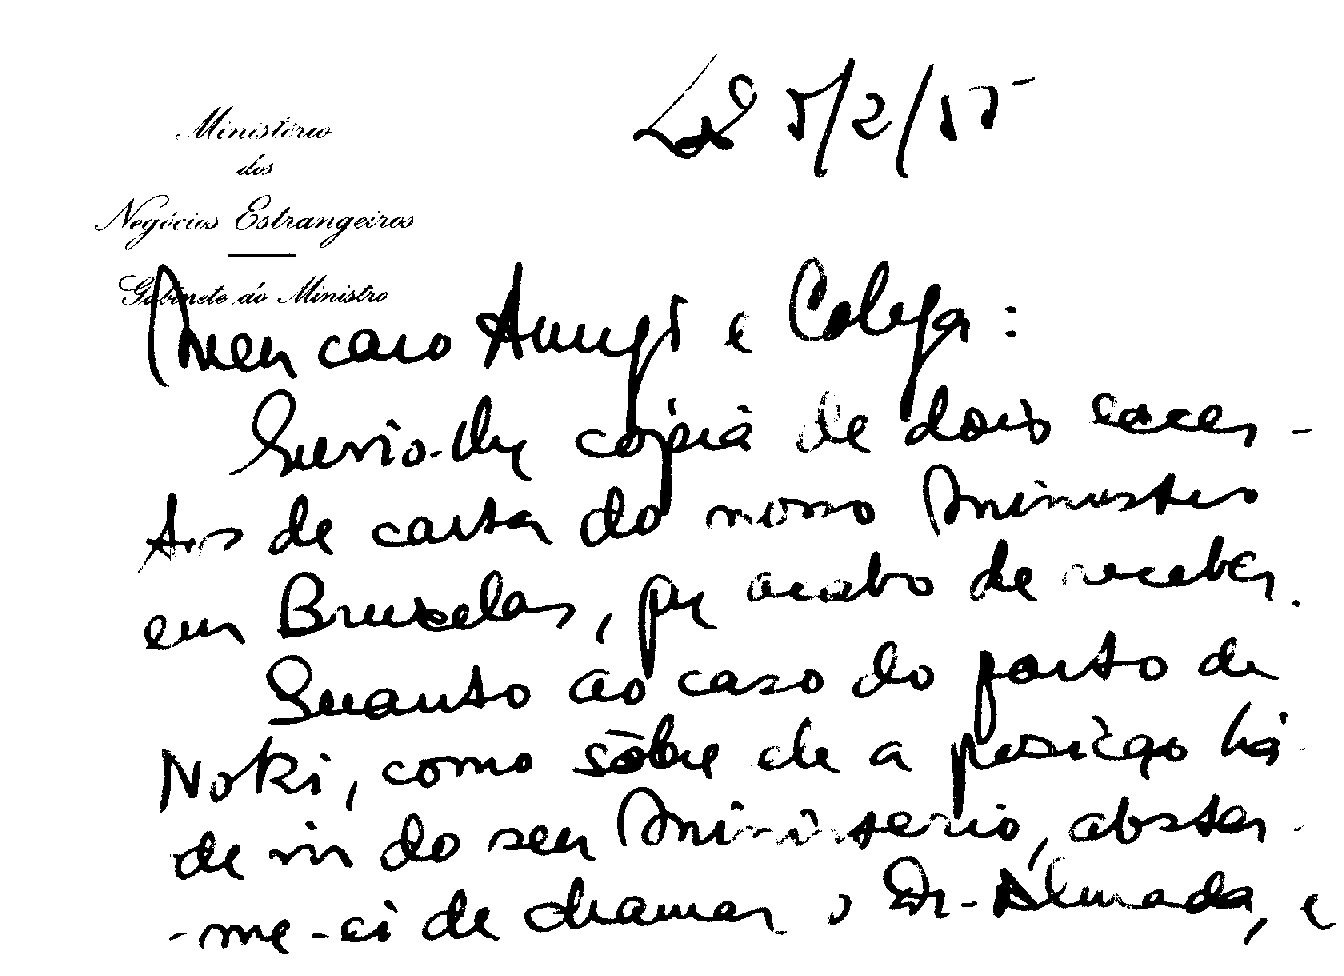 Lx 5/2/55
Ministério
dos
Negócios Estrangeiros
Gabinete do Ministro
Meu caro Amigo e Colega:
Envio-lhe cópia de dois excer-
tos de carta do nosso Ministro
em Bruxelas, que acabo de receber.
Quanto ao caso do porto de
Noki, como sôbre ele a posição há
de vir do seu Ministério, abster-
-me-ei de chamar o Dr. Almada, e